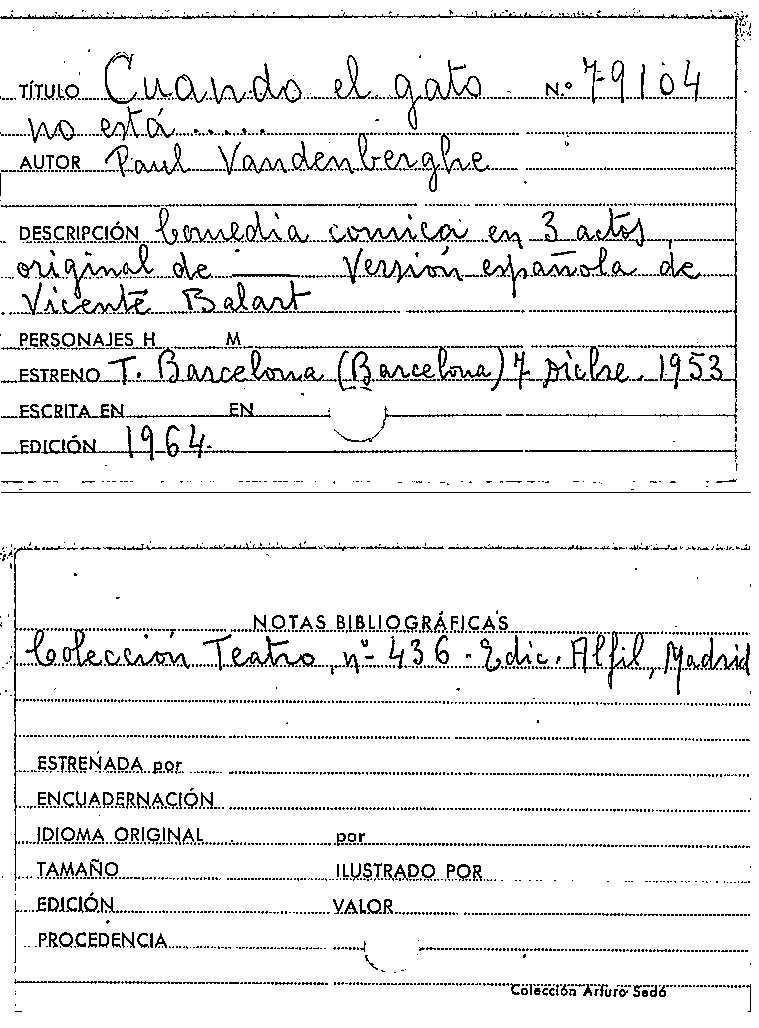 TÍTULO Cuando el gato N.º 79104
no está.....
AUTOR Paul Vandenberghe
DESCRIPCIÓN Comedia comica en 3 actos
original de ____ Versión española de
Vicente Balart
PERSONAJES H M
ESTRENO T. Barcelona (Barcelona) 7 Dicbre. 1953
ESCRITA EN EN
EDICIÓN 1964.
NOTAS BIBLIOGRÁFICAS
Colección Teatro, nº 436. Edic. Alfil, Madrid
ESTRENADA por
ENCUADERNACIÓN
IDIOMA ORIGINAL por
TAMAÑO ILUSTRADO POR
EDICIÓN VALOR
PROCEDENCIA
Colección Arturo Sedó